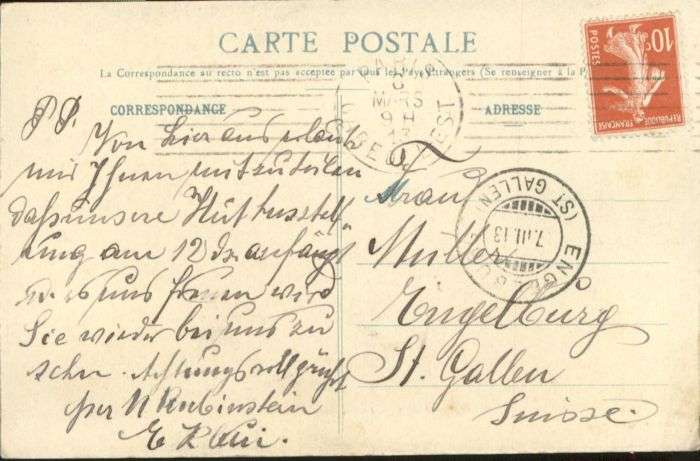 CARTE POSTALE
La Correspondance au recto n'est pas acceptée par tous les Pays Etrangers (Se renseigner à la P
CORRESPONDANCE
ADRESSE
P.P.
Von hier aus erlaubt
mir Ihnen mitzuteilen
daß unsere Hut
am 12 anfängt
es uns freuen wird
Sie wieder bei uns zu
sehn. Achtungsvoll grüßt
per N Rubinstein
E Klein.
Frau
Müller
Engelburg
St. Gallen
Suisse.
10c
POSTES
REPUBLIQUE FRANÇAISE
PARIS
MARS
13
GARE
EST
ENGELBURG
(ST GALLEN)
7.III.13